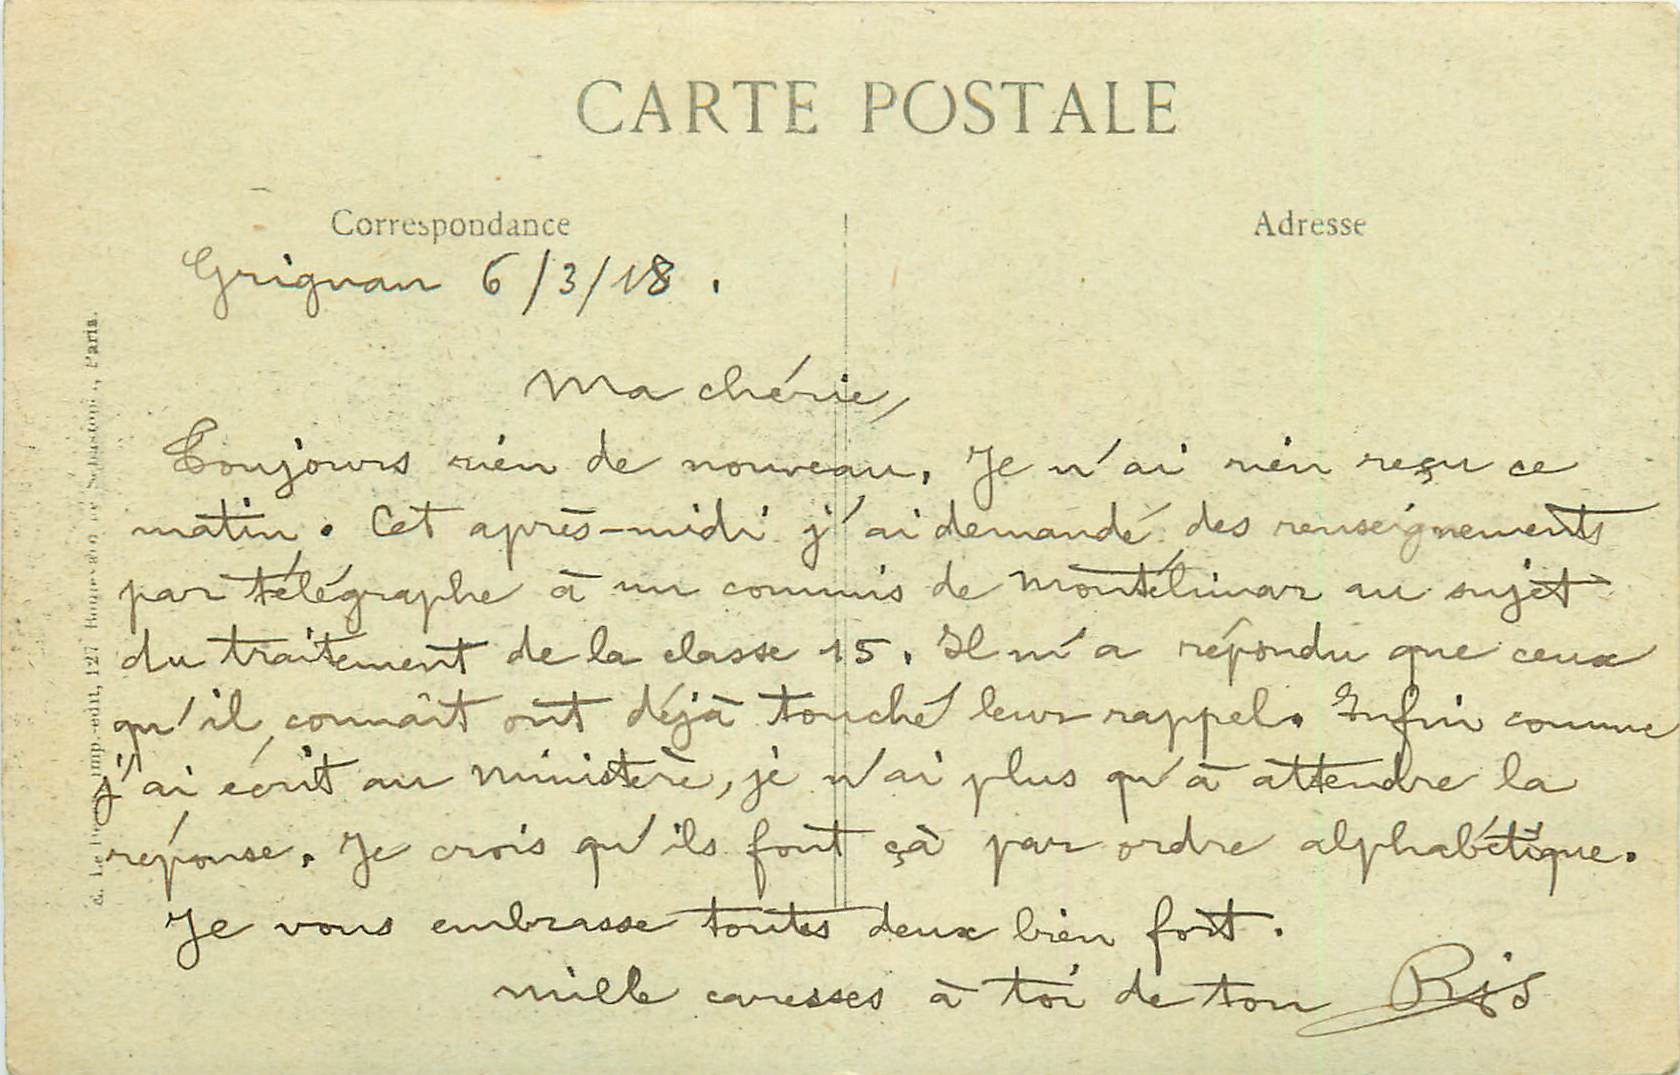 CARTE POSTALE
Correspondance
Adresse
Grignan 6/3/18.
Ma chérie,
Toujours rien de nouveau. Je n'ai rien reçu ce
matin. Cet après-midi j'ai demandé des renseignements
par télégraphe à un commis de Montélimar au sujet
du traitement de la classe 15. Il m'a répondu que ceux
qu'il connaît ont déjà touché leur rappel. Enfin comme
j'ai écrit au ministère, je n'ai plus qu'à attendre la
réponse. Je crois qu'ils font çà par ordre alphabétique.
Je vous embrasse toutes deux bien fort.
Mille caresses à toi de ton Ris
imp.-édit., 127 Paris.